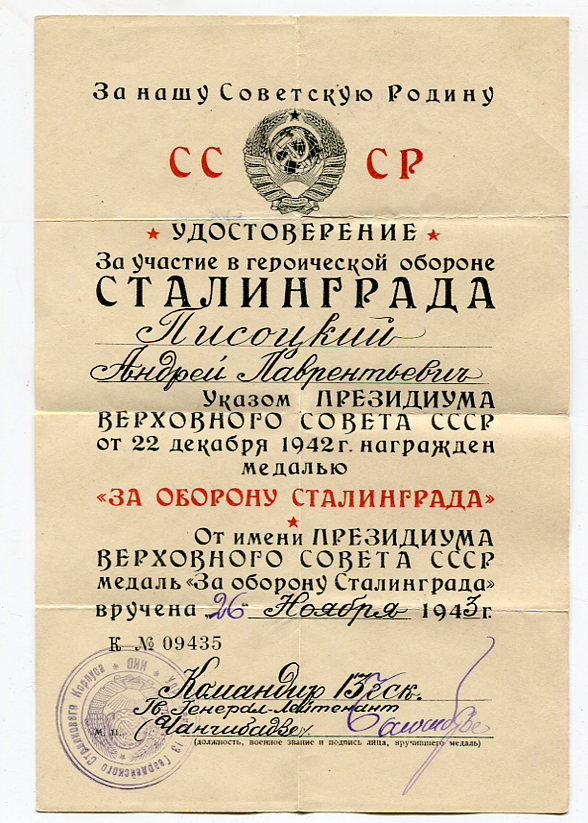 За нашу Советскую Родину
СС СР
УДОСТОВЕРЕНИЕ
За участие в героической обороне
СТАЛИНГРАДА
Писоцкий
Андрей Лаврентьевич
Указом ПРЕЗИДИУМА
ВЕРХОВНОГО СОВЕТА СССР
от 22 декабря 1942 г. награжден
медалью
«ЗА ОБОРОНУ СТАЛИНГРАДА»
От имени ПРЕЗИДИУМА
ВЕРХОВНОГО СОВЕТА СССР
медаль «За оборону Сталинграда»
вручена „26" Ноября 1943 г.
К № 09435
Командир 13 гск.
Гв. Генерал-Лейтенант
м. п.
(должность, военное звание и подпись лица, вручившего медаль)
13 Гвардейского Стрелкового Корпуса * НКО *